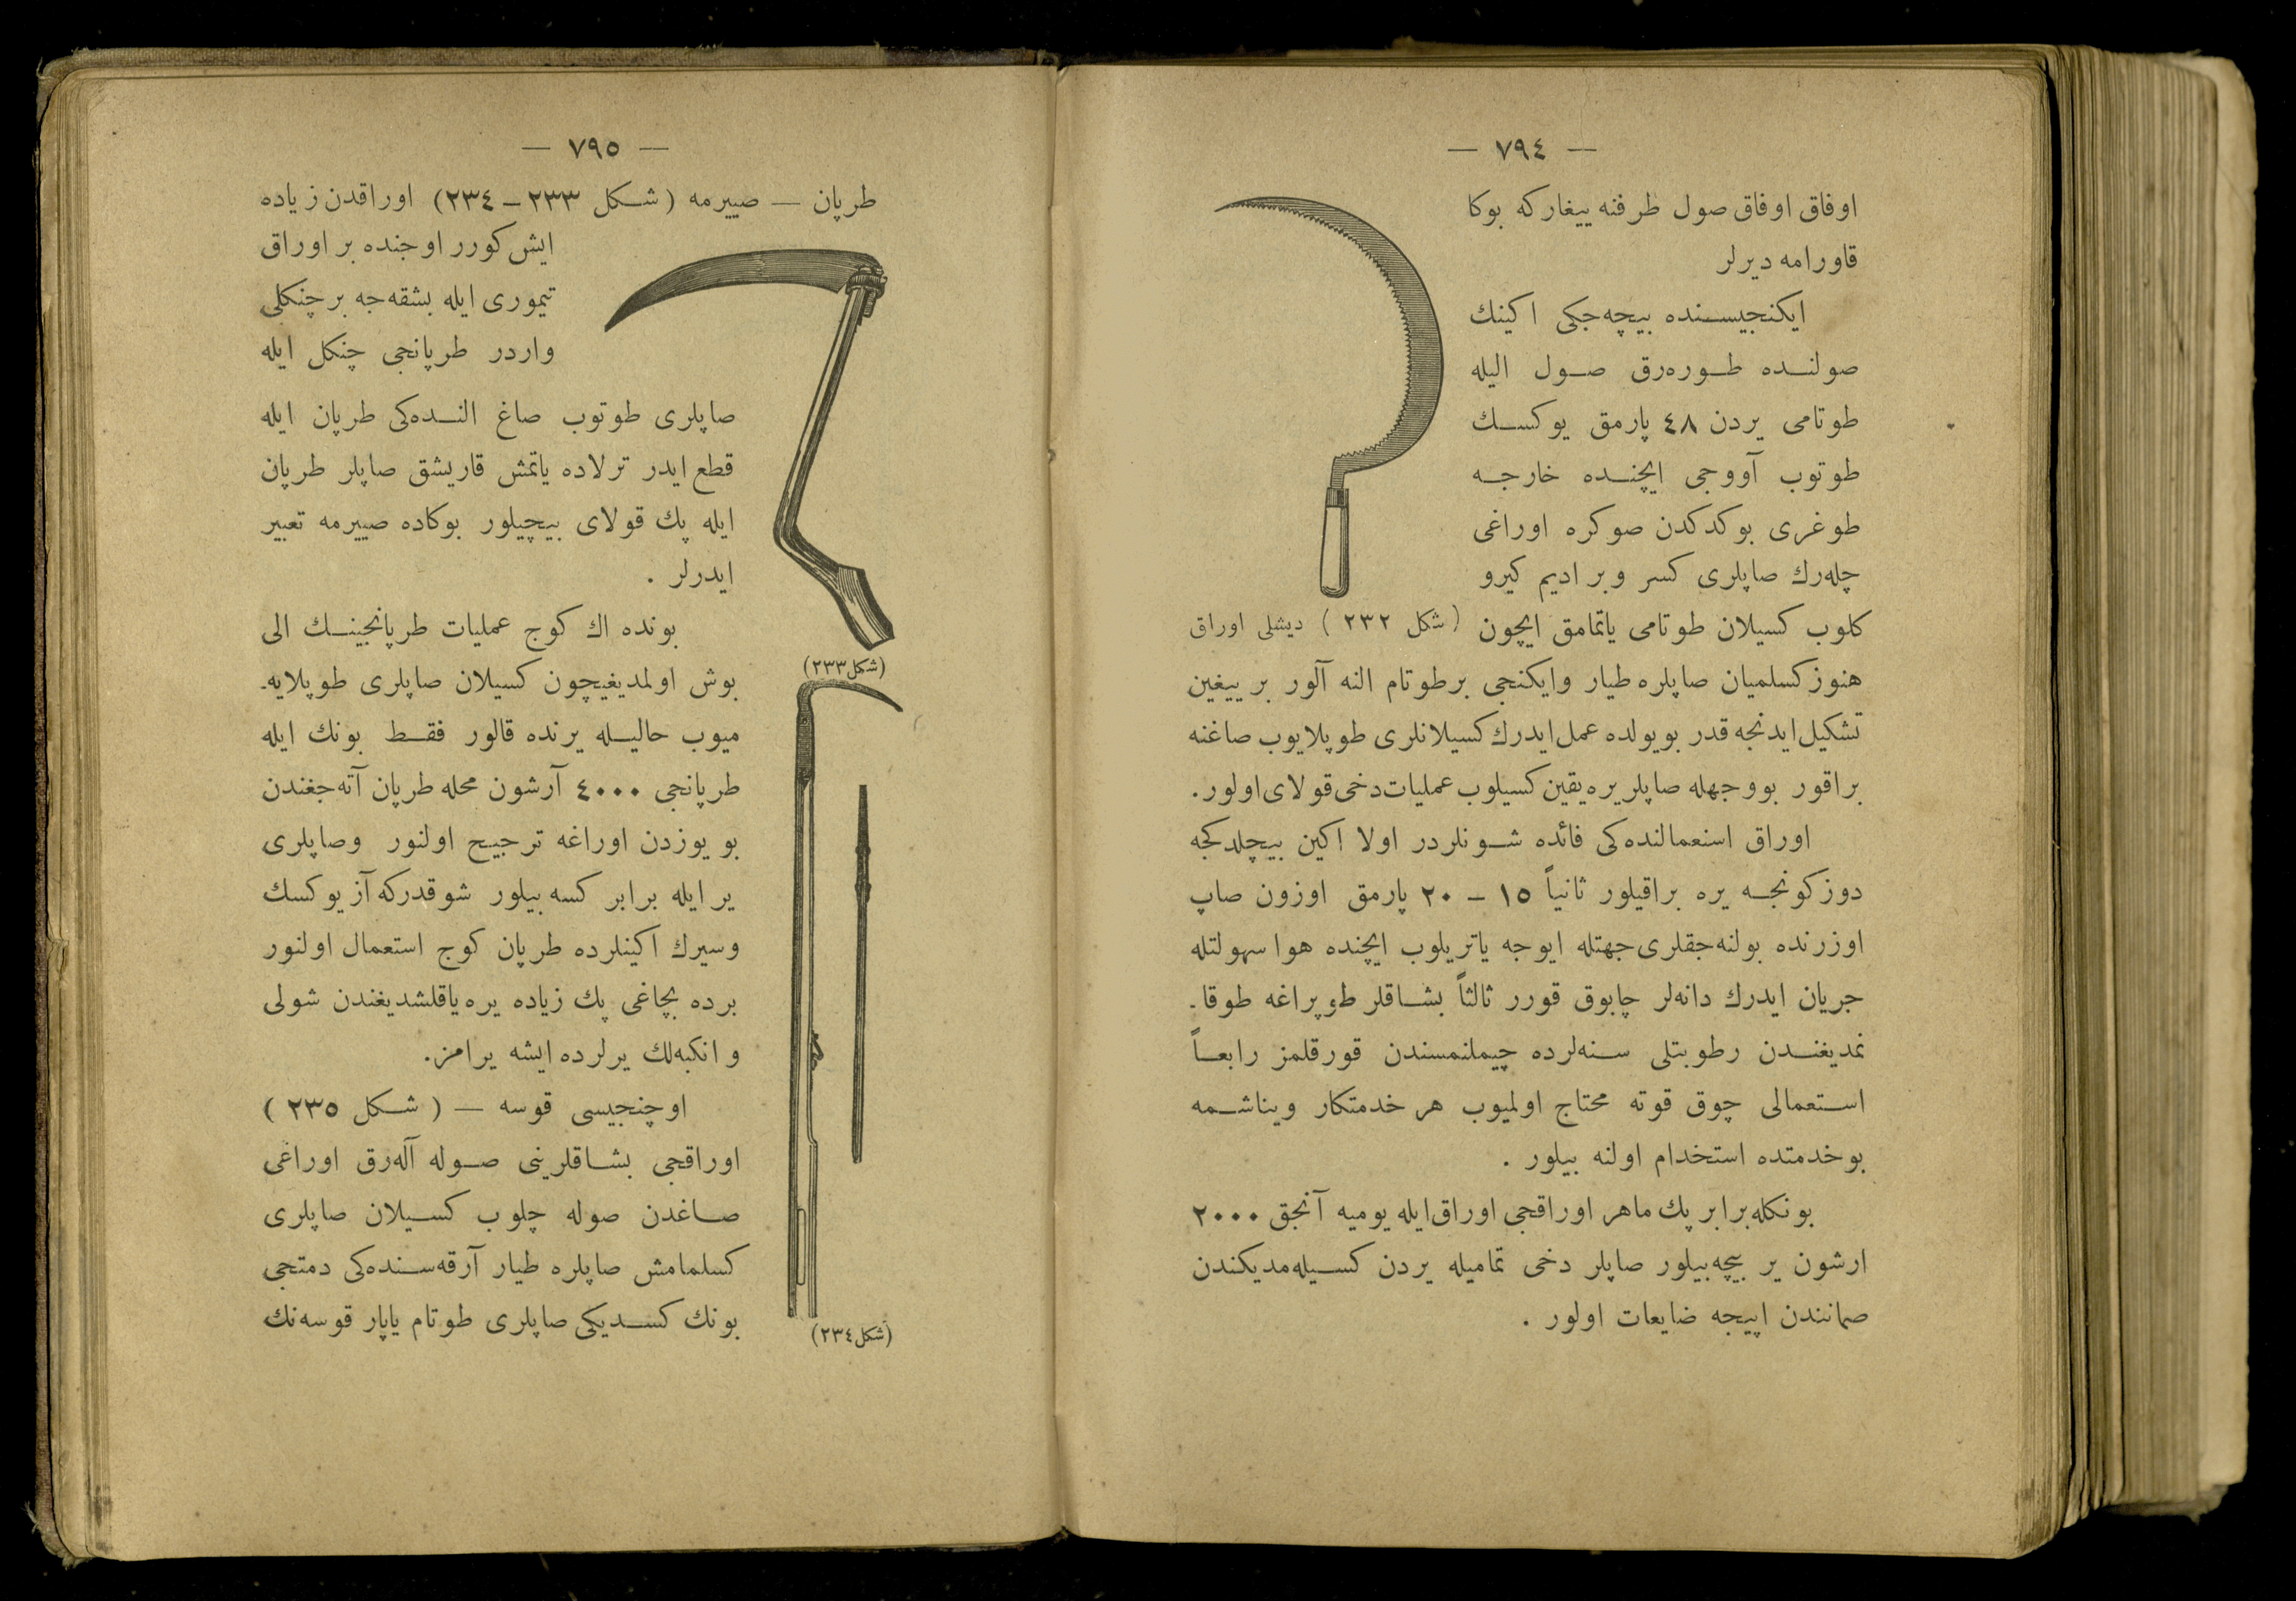 — ٧٩٤ —
اوفاق اوفاق صول طرفنه ييغاركه بوكا
قاورامه ديرلر
ايكنجيسنده بيچه‌جكى اكينك
صولنده طوره‌رق صول اليله
طوتامى يردن ٤٨ پارمق يوكسك
طوتوب آووجى ايچنده خارجه
طوغرى بوكدكدن صوكره اوراغى
چله‌رك صاپلرى كسر وبر اديم كيرو
كلوب كسيلان طوتامى ياتمامق ايچون
(شكل ٢٣٢) ديشلى اوراق
هنوز كسلميان صاپلره طيار وايكنجى برطوتام النه آلور بر ييغين
تشكيل ايدنجه قدر بويولده عمل ايدرك كسيلانلرى طوپلايوب صاغنه
براقور بووجهله صاپلر يره يقين كسيلوب عمليات دخى قولاى اولور.
اوراق استعمالنده‌كى فائده شونلردر اولا اكين بيچلدكجه
دوزكونجه يره براقيلور ثانياً ١٥ – ٢٠ پارمق اوزون صاپ
اوزرنده بولنه‌جقلرى جهتله ايوجه ياتريلوب ايچنده هوا سهولتله
جريان ايدرك دانه‌لر چابوق قورر ثالثاً بشاقلر طوپراغه طوقا-
نمديغندن رطوبتلى سنه‌لرده چيملنمسندن قورقلمز رابعاً
استعمالى چوق قوته محتاج اولميوب هر خدمتكار ويناشمه
بوخدمتده استخدام اولنه بيلور .
بونكله برابر پك ماهر اوراقجى اوراق ايله يوميه آنجق ٢٠٠٠
ارشون ير بيچه‌بيلور صاپلر دخى تماميله يردن كسيله‌مديكندن
صماننندن اپيجه ضايعات اولور .
— ٧٩٥ —
طرپان — صييرمه (شكل ٢٣٣ – ٢٣٤) اوراقدن زياده
ايش كورر اوجنده بر اوراق
تيمورى ايله بشقه‌جه بر چنكلى
واردر طرپانجى چنكل ايله
صاپلرى طوتوب صاغ النده‌كى طرپان ايله
قطع ايدر ترلاده ياتمش قاريشق صاپلر طرپان
ايله پك قولاى بيچيلور بوكاده صييرمه تعبير
ايدرلر .
بونده اك كوج عمليات طرپانجينك الى
(شكل ٢٣٣)
بوش اولمديغيچون كسيلان صاپلرى طوپلايه-
ميوب حاليله يرنده قالور فقط بونك ايله
طرپانجى ٤٠٠٠ آرشون محله طرپان آته‌جغندن
بو يوزدن اوراغه ترجيح اولنور وصاپلرى
ير ايله برابر كسه بيلور شوقدركه آز يوكسك
وسيرك اكينلرده طرپان كوج استعمال اولنور
برده بچاغى پك زياده يره ياقلشديغندن شولى
وانكبه‌لك يرلرده ايشه يرامز.
اوچنجيسى قوسه — (شكل ٢٣٥)
اوراقجى بشاقلرينى صوله آله‌رق اوراغى
صاغدن صوله چلوب كسيلان صاپلرى
كسلمامش صاپلره طيار آرقه‌سنده‌كى دمتجى
بونك كسديكى صاپلرى طوتام ياپار قوسه‌نك
(شكل ٢٣٤)